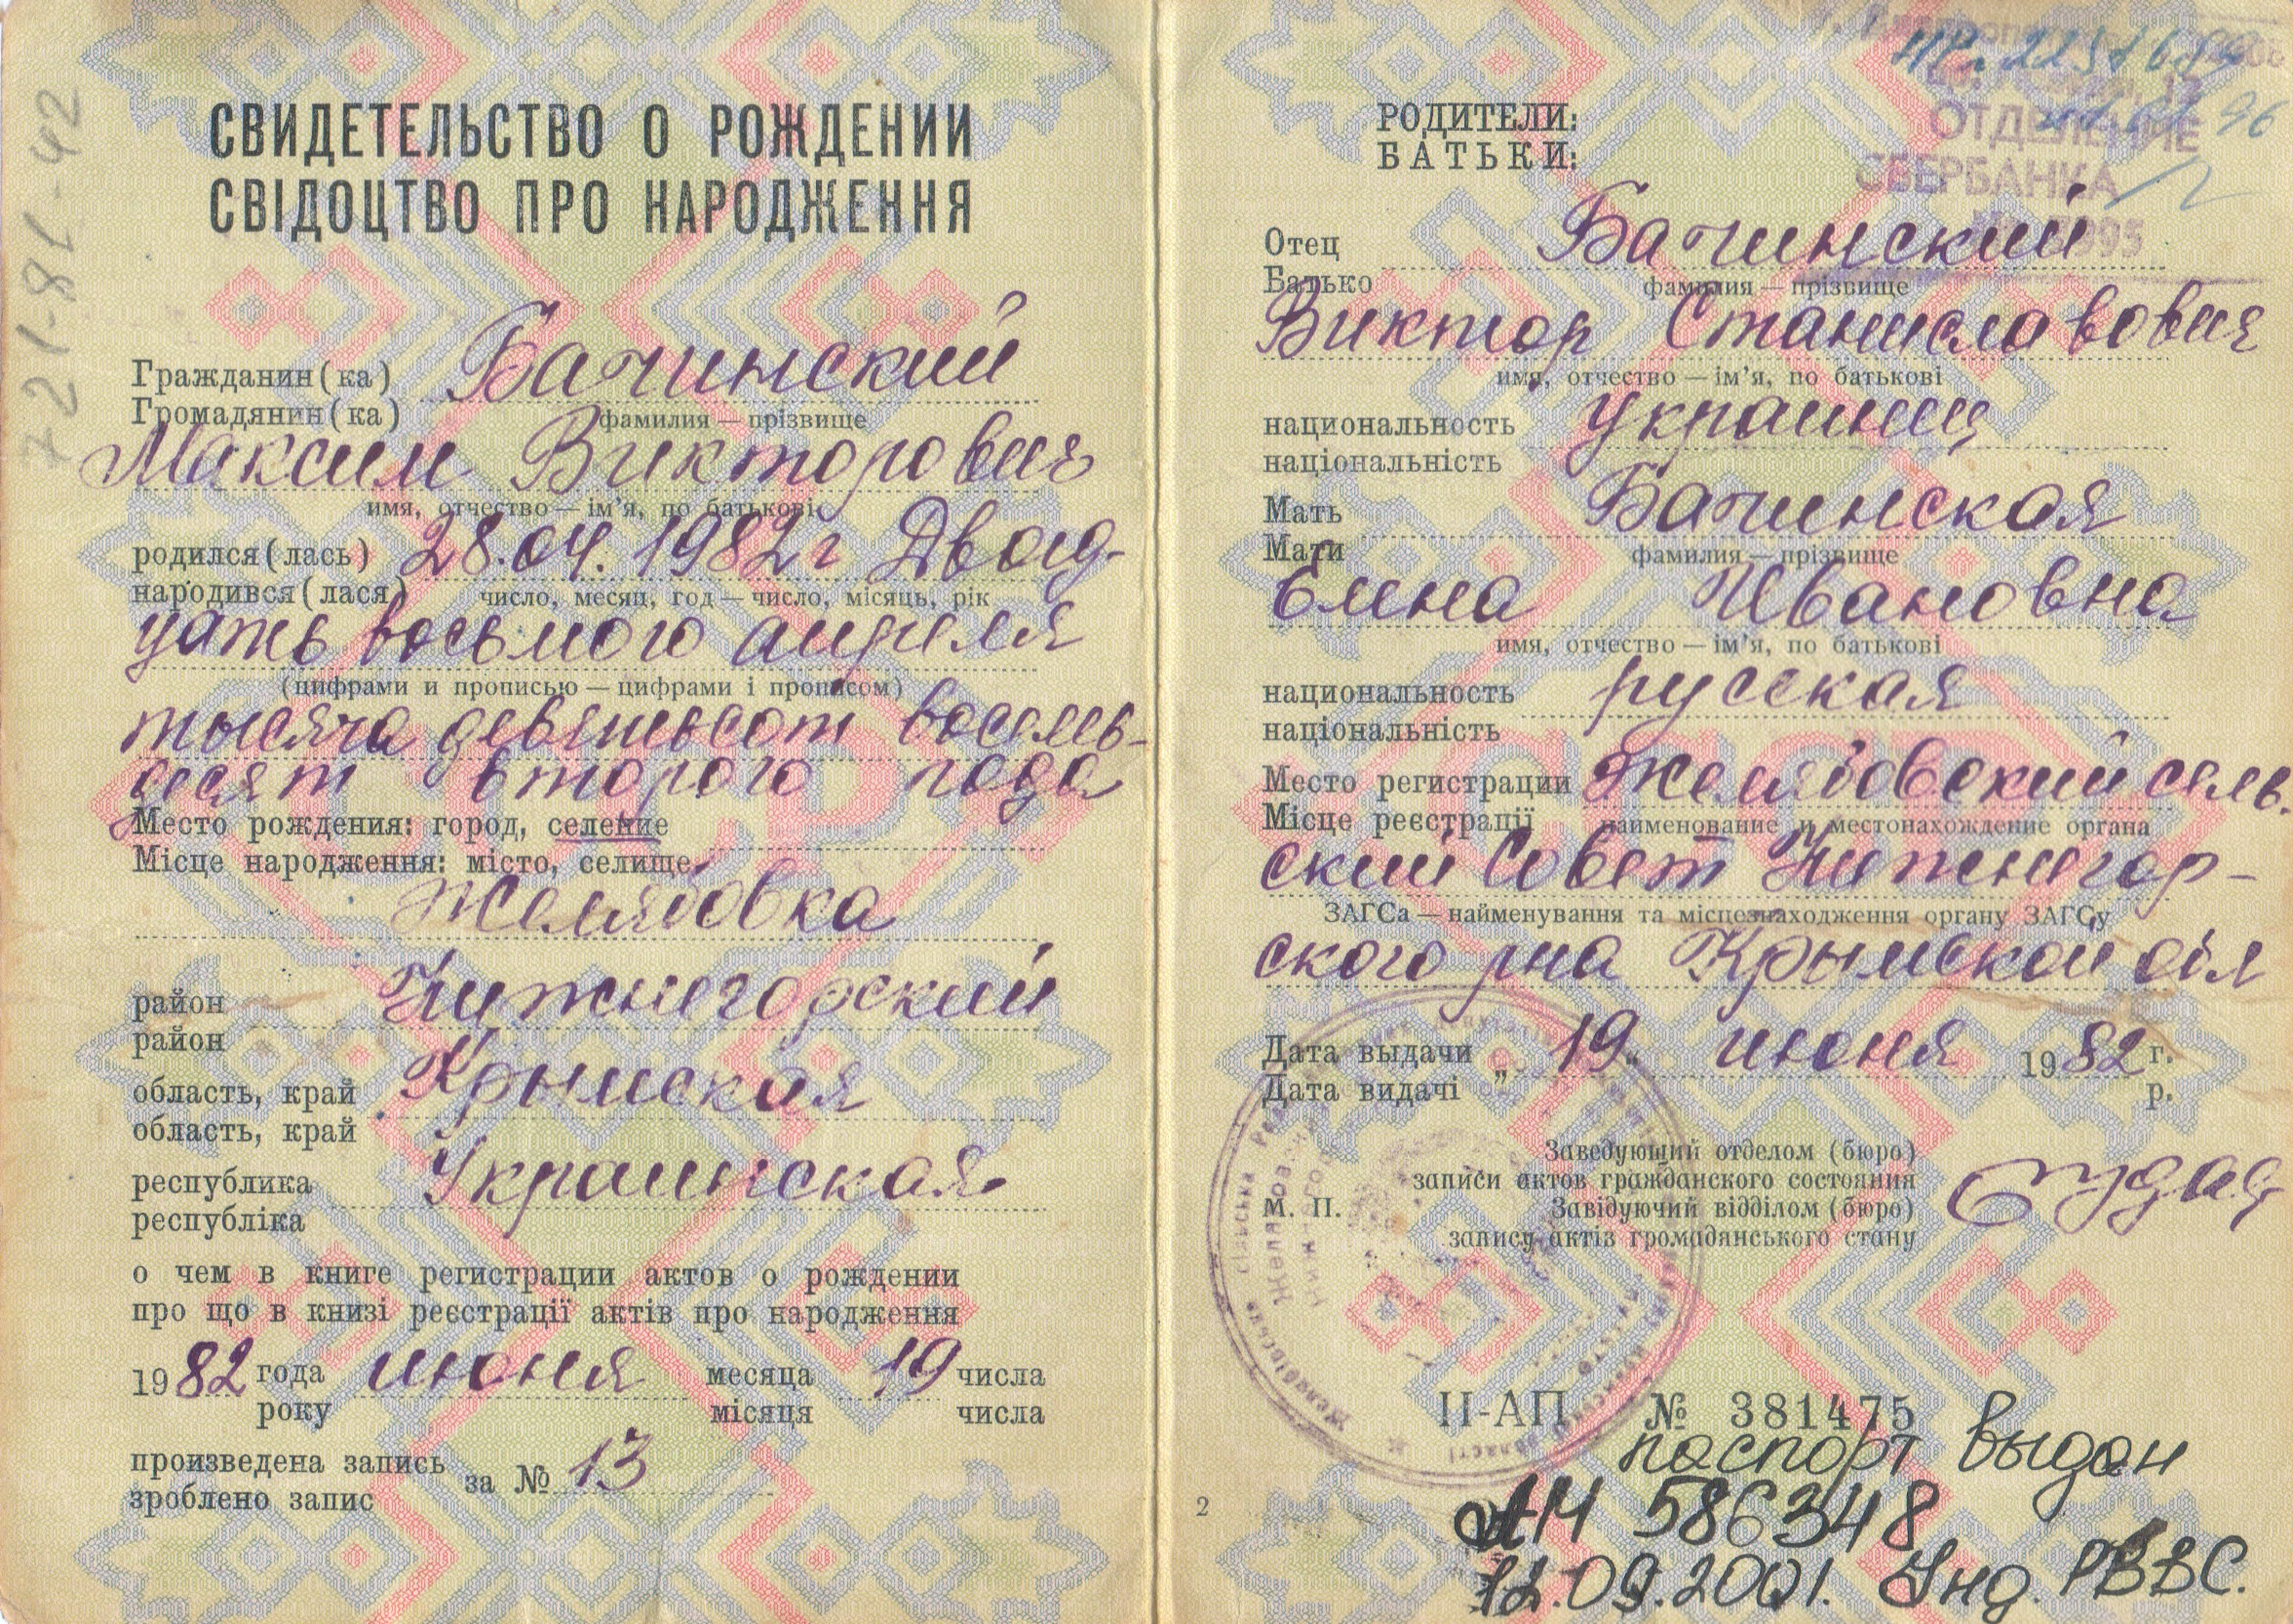 721-81-42
СВИДЕТЕЛЬСТВО О РОЖДЕНИИ
СВІДОЦТВО ПРО НАРОДЖЕННЯ
Гражданин(ка) Бачинский
Громадянин(ка) фамилия — прізвище
Максим Викторович
имя, отчество — ім'я, по батькові
родился(лась) 28.04.1982г Двад-
народився(лася) число, месяц, год — число, місяць, рік
цать восьмого апреля
(цифрами и прописью — цифрами і прописом)
тысяча девятьсот восемь-
десят второго года
Место рождения: город, селение
Місце народження: місто, селище
Желябовка
район Нижнегорский
район
область, край Крымская
область, край
республика Украинская
республіка
о чем в книге регистрации актов о рождении
про що в книзі реєстрації актів про народження
1982 года июня месяца 19 числа
року місяця числа
произведена запись за № 13
зроблено запис
РОДИТЕЛИ:
БАТЬКИ:
ОТДЕЛЕНИЕ
СБЕРБАНКА
Отец Бачинский
Батько фамилия — прізвище
Виктор Станиславович
имя, отчество — ім'я, по батькові
национальность украинец
національність
Мать Бачинская
Мати фамилия — прізвище
Елена Ивановна
имя, отчество — ім'я, по батькові
национальность русская
національність
Место регистрации Желябовский сель-
Місце реєстрації наименование и местонахождение органа
ский Совет Нижнегор-
ЗАГСа — найменування та місцезнаходження органу ЗАГСу
ского рна Крымской обл
Дата выдачи „ 19 " июня 1982 г.
Дата видачі „ р.
Заведующий отделом (бюро)
записи актов гражданского состояния
М. П. Завідуючий відділом (бюро)
запису актів громадянського стану
II-АП № 381475
паспорт выдан
АМ 586348
12.09.2001. Инд. РВВС.
2